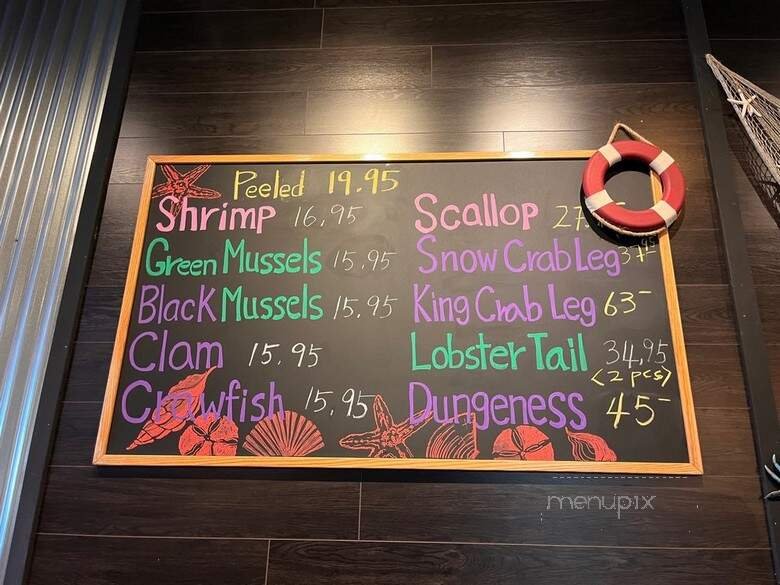 Peeled 19.95
Shrimp 16.95
Green Mussels 15.95
Black Mussels 15.95
Clam 15.95
Crawfish 15.95
Scallop
Snow Crab Leg
King Crab Leg 63-
Lobster Tail 34.95
<2 pcs>
Dungeness 45-
menupix